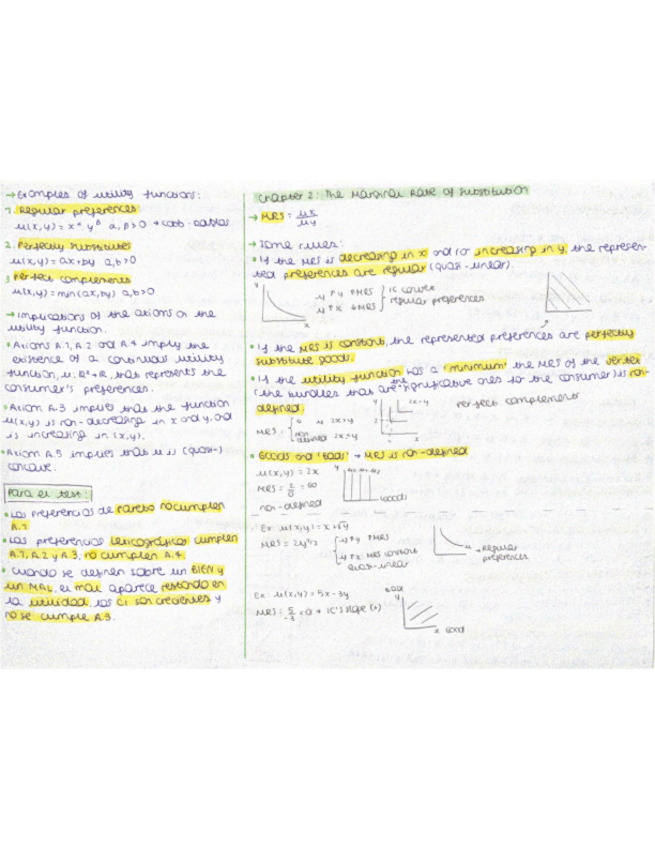 → Examples of utility functions:
1. Regular preferences
u(x,y) = x^α y^β α,β>0 → cobb-douglas
2. Perfectly substitutes
u(x,y) = ax+by a,b>0
3. Perfect complements
u(x,y) = min(ax,by) a,b>0
→ Implications of the axioms on the
utility function.
• Axioms A.1, A.2 and A.4 imply the
existence of a continuous utility
function, that represents the
consumer's preferences.
• Axiom A.3 implies that the function
u(x,y) is non-decreasing in x and y, and
is increasing in (x,y).
• Axiom A.5 implies that u is (quasi-)
concave.
Para el test:
• Las preferencias de Pareto no cumplen
A.1
• Las preferencias lexicográficas cumplen
A.1, A.2 y A.3, no cumplen A.4.
• Cuando se definen sobre un BIEN y
un MAL, el mal aparece restando en
la utilidad, las CI son crecientes y
no se cumple A.3.
Chapter 2: The Marginal Rate of Substitution
→ MRS = ux/uy
→ Some rules:
• If the MRS is decreasing in x and/or increasing in y, the represen-
ted preferences are regular (quasi-linear).
y
↓ ↑y ↑MRS } IC convex
↓ ↑x ↓MRS } regular preferences
x
• If the MRS is constant, the represented preferences are perfectly
substitute goods.
• If the utility function has a 'minimum' the MRS of the vertex
(the bundles that are the significative ones for the consumer) is non-
defined.
y 2x=y
perfect complements
MRS = { 0 y 2x>y
non defined 2x=y
• Goods and 'Bads' → MRS is non-defined
u(x,y) = 2x
MRS = 2/0 = ∞
non-defined
y
Goods
Ex: u(x,y) = x+√y
MRS = 2y^1/2
↓ ↑y ↑MRS
↓ ↑x MRS constant
quasi-linear
→ Regular
preferences
Ex: u(x,y) = 5x-3y
MRS = 5/-3 <0 → IC's slope (+)
BADS
y
x Good